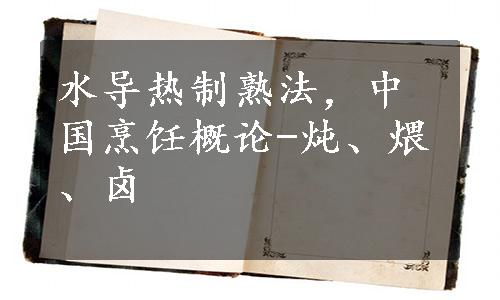 水导热制熟法，中
国烹饪概论-炖、煨
、卤